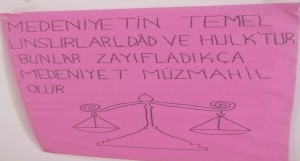 MEDENİYETİN TEMEL
UNSURLARI, DÂD VE HULK'TUR
BUNLAR ZAYIFLADIKÇA
MEDENİYET MÜZMAHİL
OLUR